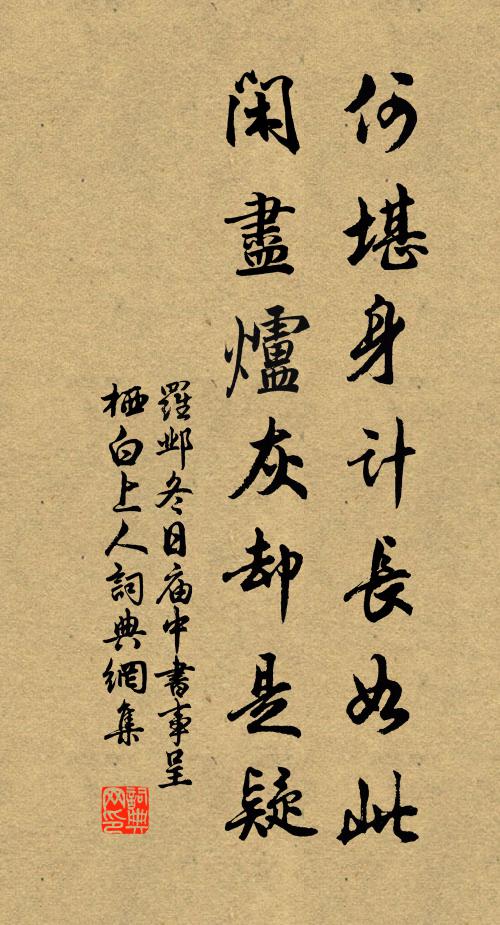 何堪身計長如此
閑盡爐灰却是疑
羅鄴冬日庙中書事呈
栖白上人詞典網集
詞典网印